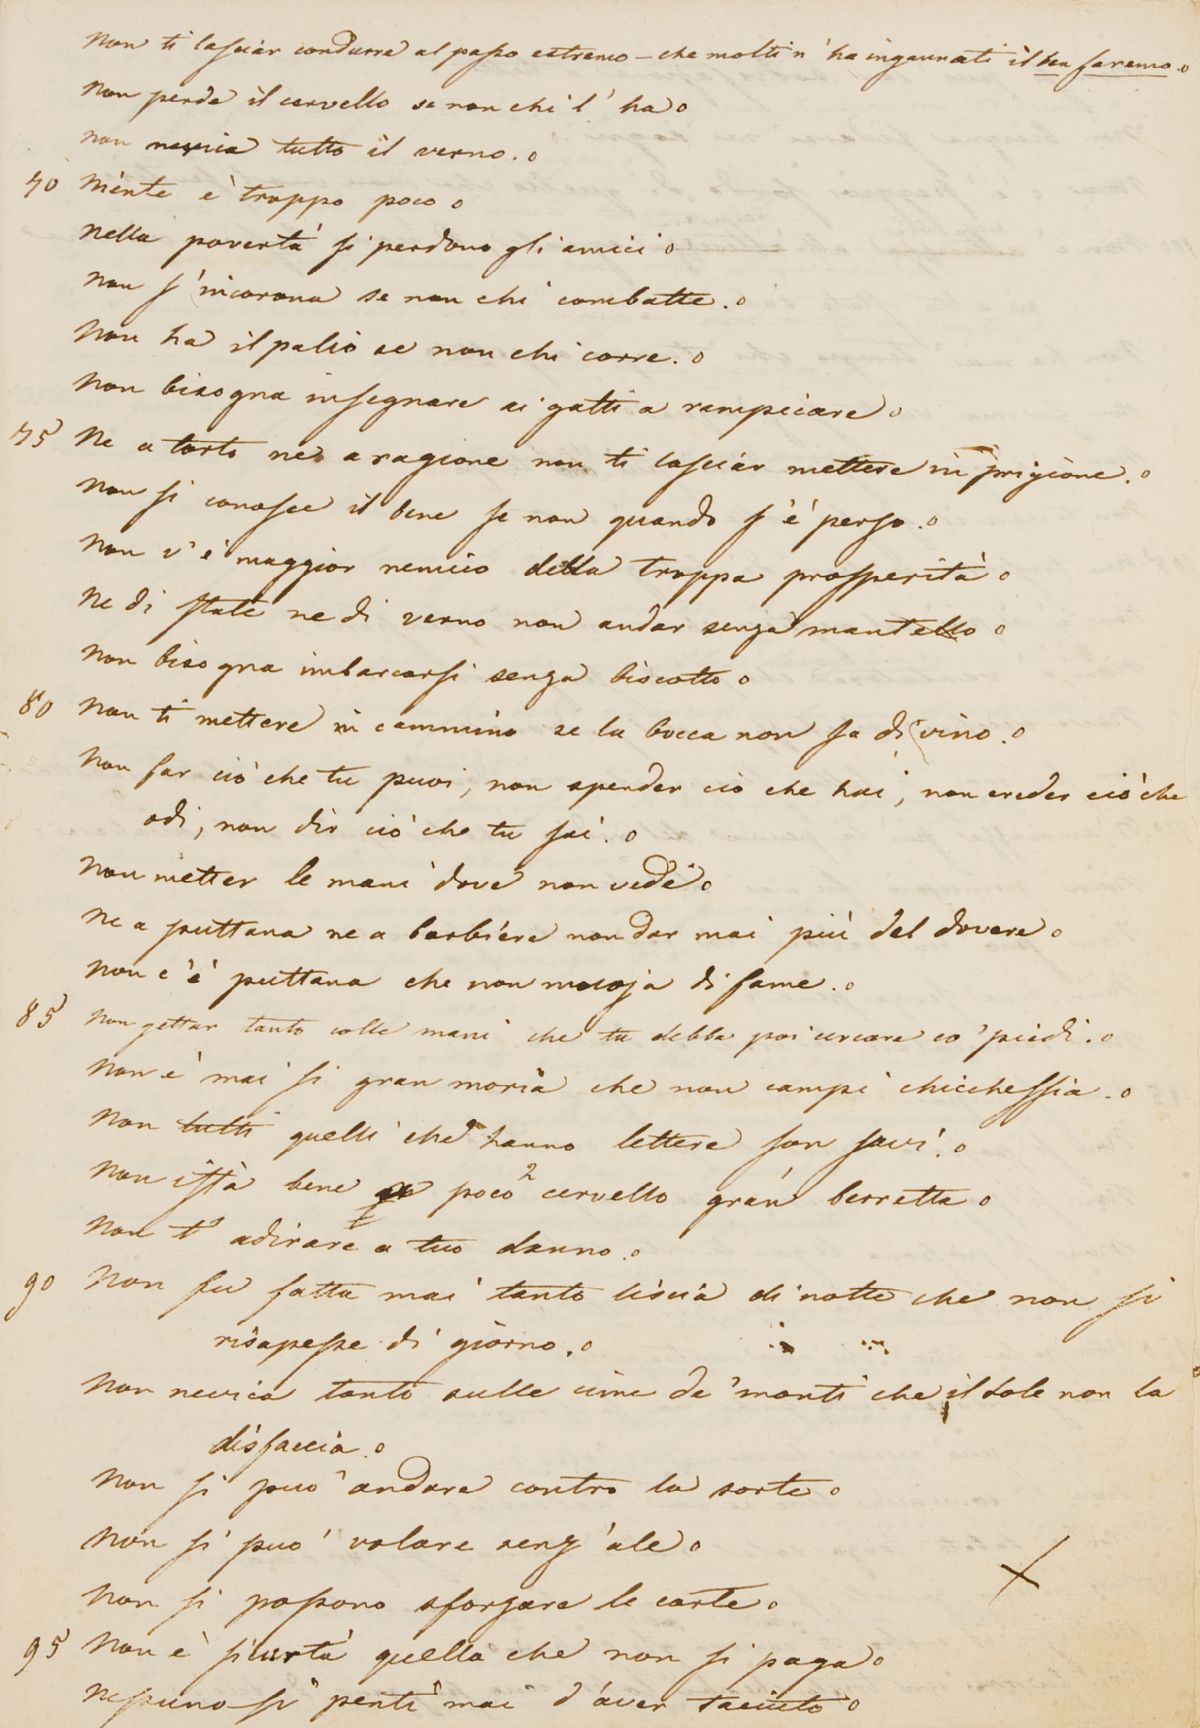 Non ti lasciar condurre al passo estremo – che molti n' ha ingannati il ben faremo. o
Non perde il cervello se non chi l' ha o
Non nevica tutto il verno. o
70 Niente è troppo poco o
Nella povertà si perdono gli amici o
Non s' incorona se non chi combatte. o
Non ha il palio se non chi corre. o
Non bisogna insegnare ai gatti a rampicare o
75 Ne a torto ne a ragione non ti lasciar mettere in prigione. o
Non si conosce il bene se non quando s' è perso. o
Non v' è maggior nemico della troppa prosperità o
Ne di state ne di verno non andar senza mantello o
Non bisogna imbarcarsi senza biscotto o
80 Non ti mettere in cammino se la bocca non sa di vino. o
Non far ciò che tu puoi, non spender ciò che hai, non creder ciò che
odi, non dir ciò che tu sai. o
Non metter le mani dove non vedi o
Ne a puttana ne a barbiere non dar mai più del dovere o
Non c' è puttana che non muoja di fame. o
85 Non gettar tanto colle mani che tu debba poi cercare co' piedi. o
Non è mai si gran moria che non campi chicchessia. o
Non tutti quelli che hanno lettere son savi. o
Non istà bene poco 2 cervello gran berretta o
Non t' adirare a tuo danno. o
90 Non fu fatta mai tanto liscia di notte che non si
risapesse di giorno. o
Non nevica tanto sulle cime de' monti che il sole non la
disfaccia. o
Non si può andare contro la sorte o
Non si può volare senz' ale o
Non si possono sforzare le carte o
95 Non è sicurtà quella che non si paga o
Nessuno si pentì mai d' aver taciuto o